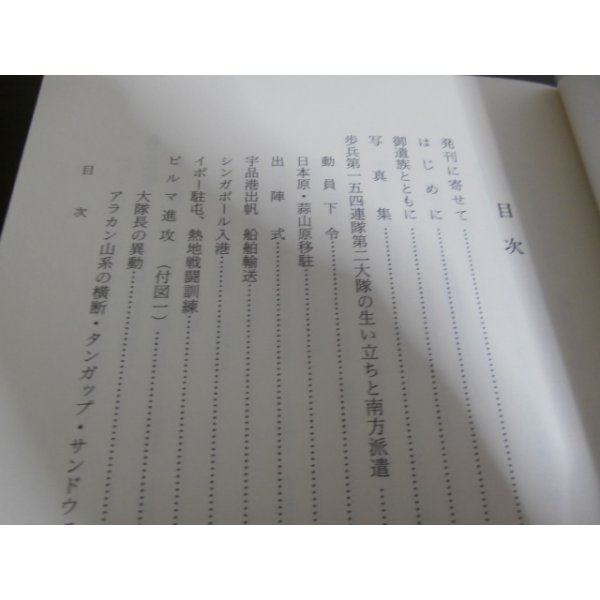 目次
発刊に寄せて
はじめに
御遺族とともに
写真集
歩兵第一五四連隊第二大隊の生い立ちと南方派遣
動員下令
日本原・蒜山原移駐
出陣式
宇品港出帆 船舶輸送
シンガポール入港
イポー駐屯、熱地戦闘訓練
ビルマ進攻（付図一）
大隊長の異動
アラカン山系の横断・タンガップ・サンドウ
目次